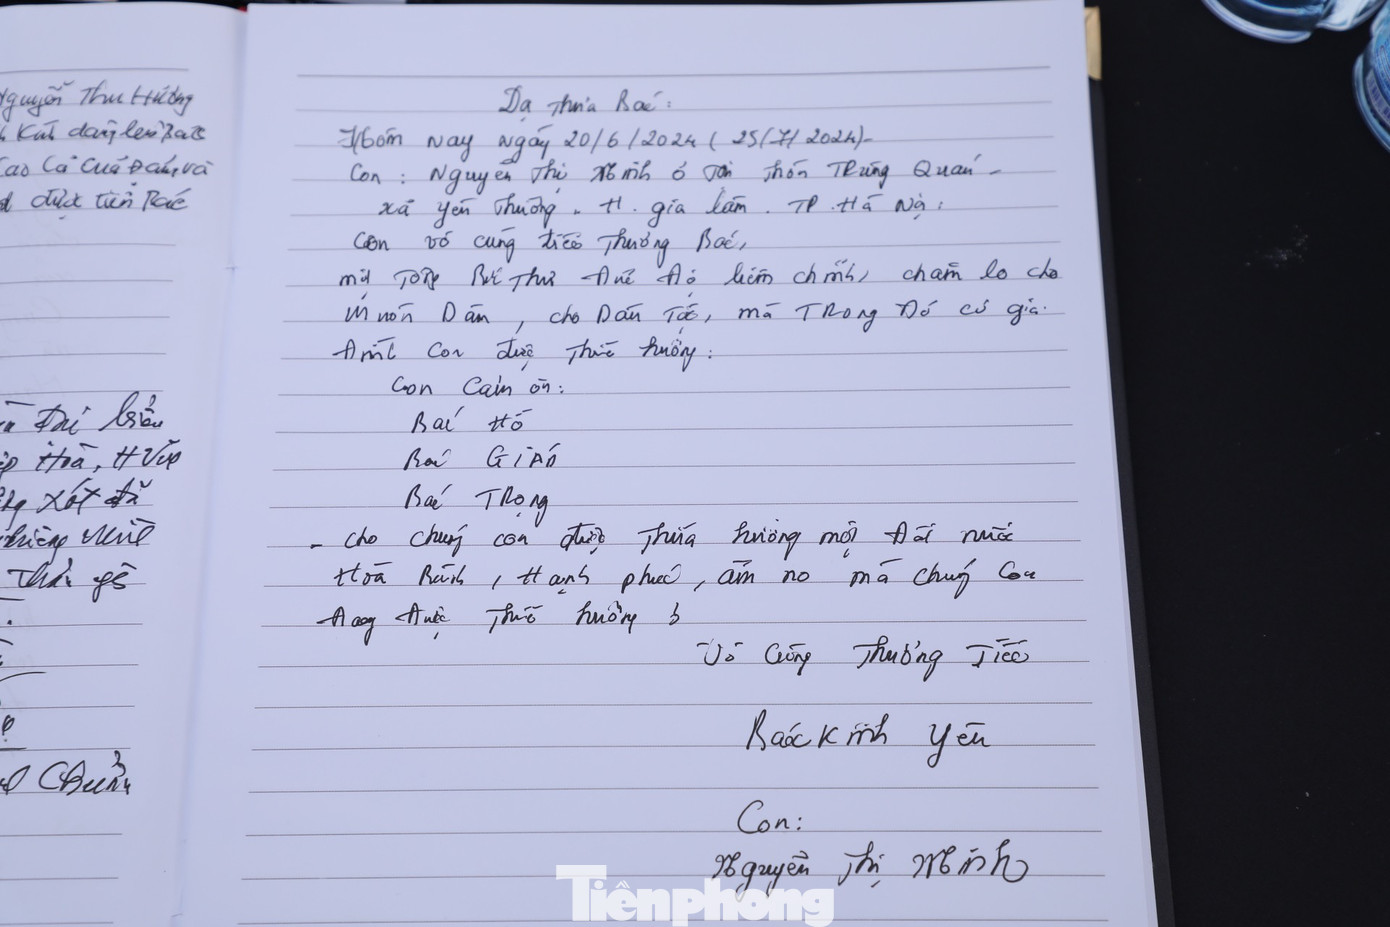 Nguyễn Thu Hương
cao cả của Đảng và
được tiễn Bác
Đại biểu
Hoà, H
xót đã
Thế gê
Chuẩn
Dạ thưa Bác:
Hôm nay ngày 20/6/2024 ( 25/7/2024)-
Con: Nguyễn Thị Minh ở Tại Thôn Trùng Quán -
xã Yên Thường. H. gia lâm. TP. Hà Nội:
Con vô cùng tiếc thương Bác,
một Tổng Bí Thư liêm chính, chăm lo cho
muôn Dân, cho Dân Tộc, mà Trong Đó có gia
đình con được thừa hưởng:
Con Cảm ơn:
Bác Hồ
Bác GIÁP
Bác TRọng
- cho chúng con được thừa hưởng một Đất nước
Hoà Bình, Hạnh phúc, ấm no mà chúng con
đang được Thừa hưởng
Vô Cùng Thương Tiếc
Bác Kính Yêu
Con:
Nguyễn Thị Minh
Tiềnphong